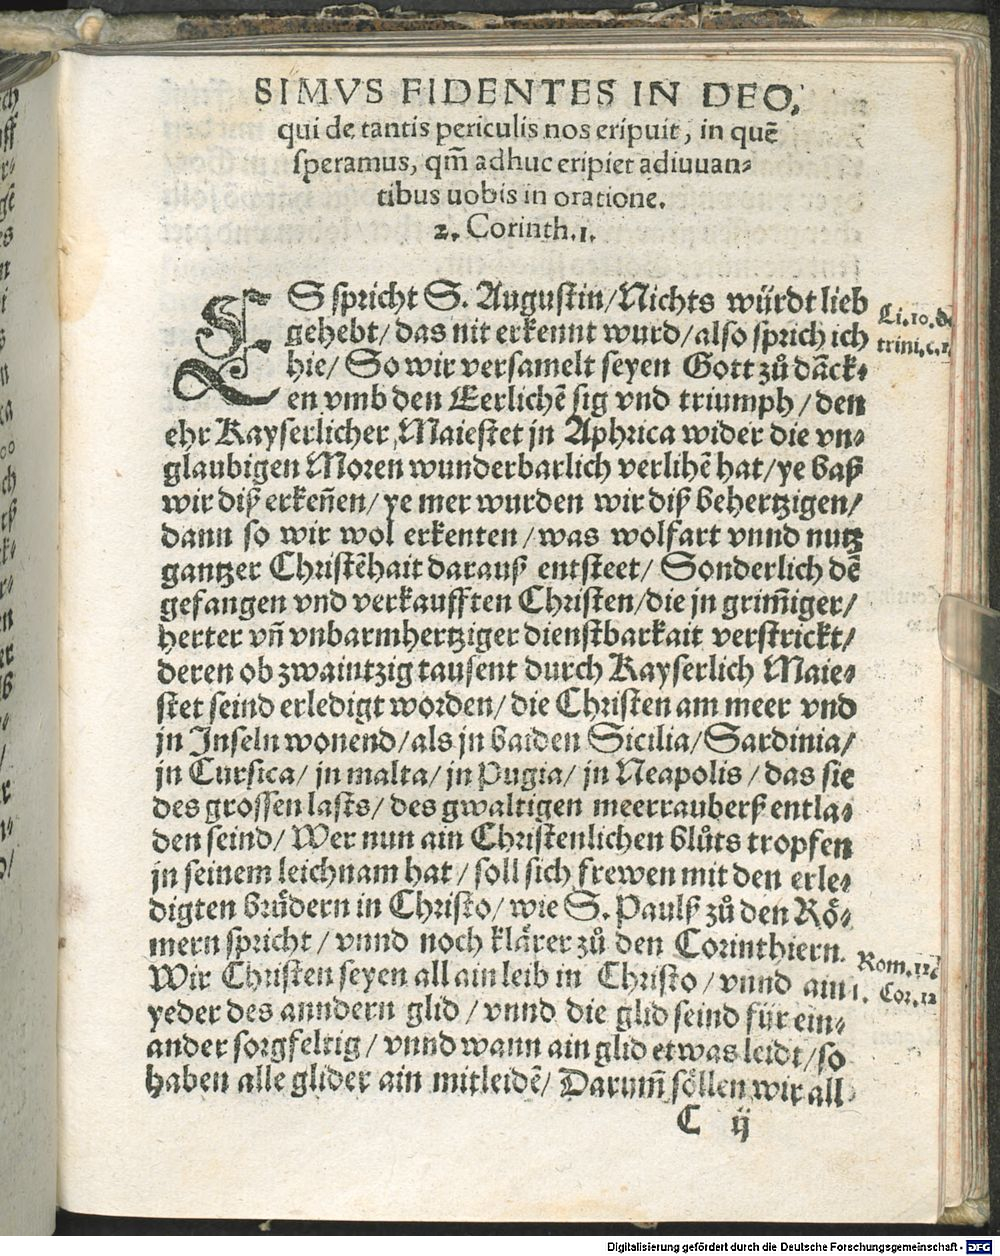 SIMVS FIDENTES IN DEO,
qui de tantis periculis nos eripuit, in quē
speramus, qm̄ adhuc eripiet adiuuan⸗
tibus uobis in oratione.
2. Corinth. 1.
ES spricht S. Augustin/Nichts würdt lieb
gehebt/das nit erkennt wurd/also sprich ich
hie/ So wir versamelt seyen Gott zů dāck⸗
en vmb den Eerlichē sig vnd triumph/den
ehr Kayserlicher Maiestet jn Aphrica wider die vn⸗
glaubigen Moren wunderbarlich verlihē hat/ye baß
wir diß erkeñen/ye mer wurden wir diß behertzigen/
dann so wir wol erkenten/was wolfart vnnd nutz
gantzer Christēhait darauß entsteet/ Sonderlich dē
gefangen vnd verkaufften Christen/die jn grim̄iger/
herter vñ vnbarmhertziger dienstbarkait verstrickt/
deren ob zwaintzig tausent durch Kayserlich Maie⸗
stet seind erledigt worden/die Christen am meer vnd
jn Inseln wonend/als jn baiden Sicilia/Sardinia/
jn Cursica/jn malta/jn Pugia/jn Neapolis/das sie
des grossen lasts/des gwaltigen meerrauberß entla⸗
den seind/Wer nun ain Christenlichen blůts tropfen
jn seinem leichnam hat/soll sich frewen mit den erle⸗
digten brůdern in Christo/wie S. Paulß zů den Rö⸗
mern spricht/vnnd noch klärer zů den Corinthiern.
Wir Christen seyen all ain leib in Christo/vnnd ain
yeder des anndern glid/vnnd die glid seind für ein⸗
ander sorgfeltig/vnnd wann ain glid etwas leidt/so
haben alle glider ain mitleidē/Darum̄ söllen wir all
C ij
Li.10.de
trini.c.1.
Rom.12
1. Cor.12
Digitalisierung gefördert durch die Deutsche Forschungsgemeinschaft - DFG